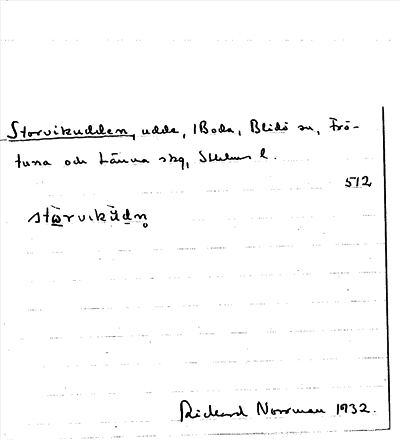 Storvikudden, udde, 1 Boda, Blidö sn, Frö-
tuna och Länna skg, Sthlms l.
512
stọ̀rvikùdn̥
Rickard Norrman 1932.